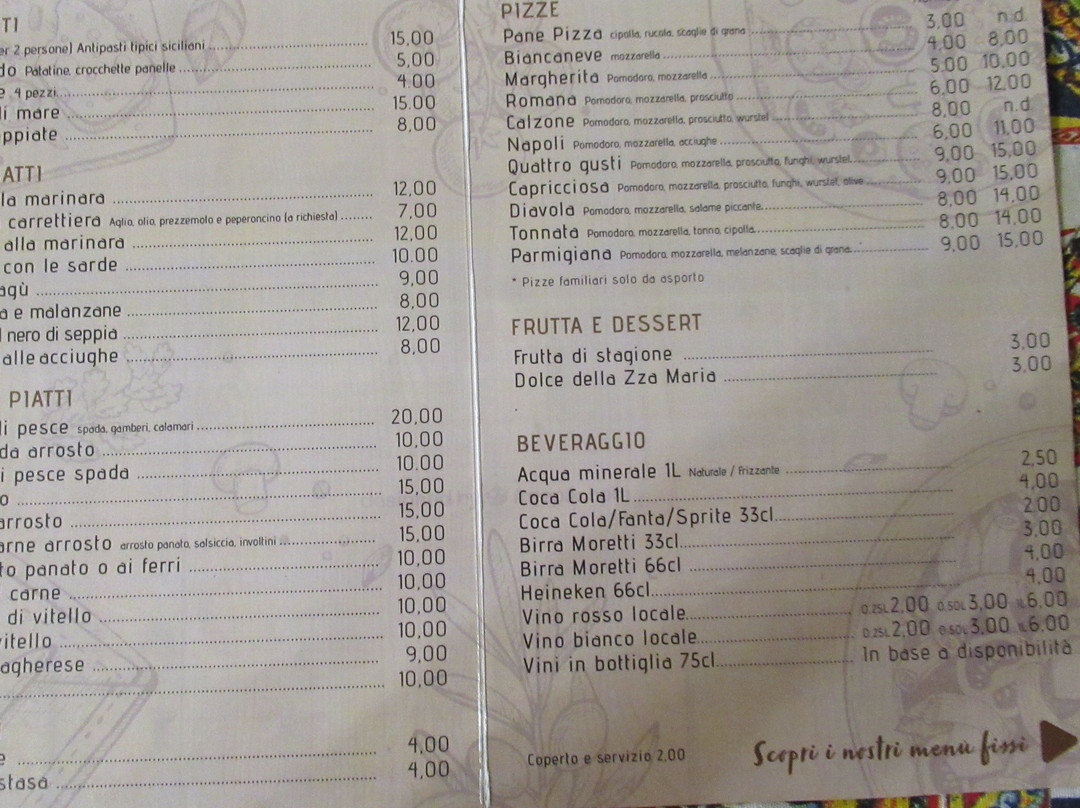 TI
er 2 persone) Antipasti tipici siciliani 15,00
do Patatine, crocchette panelle 5,00
e 4 pezzi 4,00
di mare 15,00
eppiate 8,00
ATTI
la marinara 12,00
carrettiera Aglio, olio, prezzemolo e peperoncino (a richiesta) 7,00
alla marinara 12,00
con le sarde 10,00
agù 9,00
a e malanzane 8,00
l nero di seppia 12,00
alle acciughe 8,00
PIATTI
di pesce spada, gamberi, calamari 20,00
da arrosto 10,00
i pesce spada 10,00
o 15,00
arrosto 15,00
arne arrosto arrosto panato, salsiccia, involtini 15,00
to panato o ai ferri 10,00
carne 10,00
di vitello 10,00
vitello 10,00
agherese 9,00
10,00
e 4,00
stasa 4,00
PIZZE
Pane Pizza cipolla, rucola, scaglie di grana 3,00 n.d.
Biancaneve mozzarella 4,00 8,00
Margherita Pomodoro, mozzarella 5,00 10,00
Romana Pomodoro, mozzarella, prosciutto 6,00 12,00
Calzone Pomodoro, mozzarella, prosciutto, wurstel 8,00 n.d.
Napoli Pomodoro, mozzarella, acciughe 6,00 11,00
Quattro gusti Pomodoro, mozzarella, prosciutto, funghi, wurstel 9,00 15,00
Capricciosa Pomodoro, mozzarella, prosciutto, funghi, wurstel, olive 9,00 15,00
Diavola Pomodoro, mozzarella, salame piccante 8,00 14,00
Tonnata Pomodoro, mozzarella, tonno, cipolla 8,00 14,00
Parmigiana Pomodoro, mozzarella, melanzane, scaglie di grana 9,00 15,00
* Pizze familiari solo da asporto
FRUTTA E DESSERT
Frutta di stagione 3,00
Dolce della Zza Maria 3,00
BEVERAGGIO
Acqua minerale 1L Naturale / Frizzante 2,50
Coca Cola 1L 4,00
Coca Cola/Fanta/Sprite 33cl 2,00
Birra Moretti 33cl 3,00
Birra Moretti 66cl 4,00
Heineken 66cl 4,00
Vino rosso locale 0.25L 2,00 0.50L 3,00 1L 6,00
Vino bianco locale 0.25L 2,00 0.50L 3,00 1L 6,00
Vini in bottiglia 75cl In base a disponibilità
Coperto e servizio 2,00
Scopri i nostri menù fissi